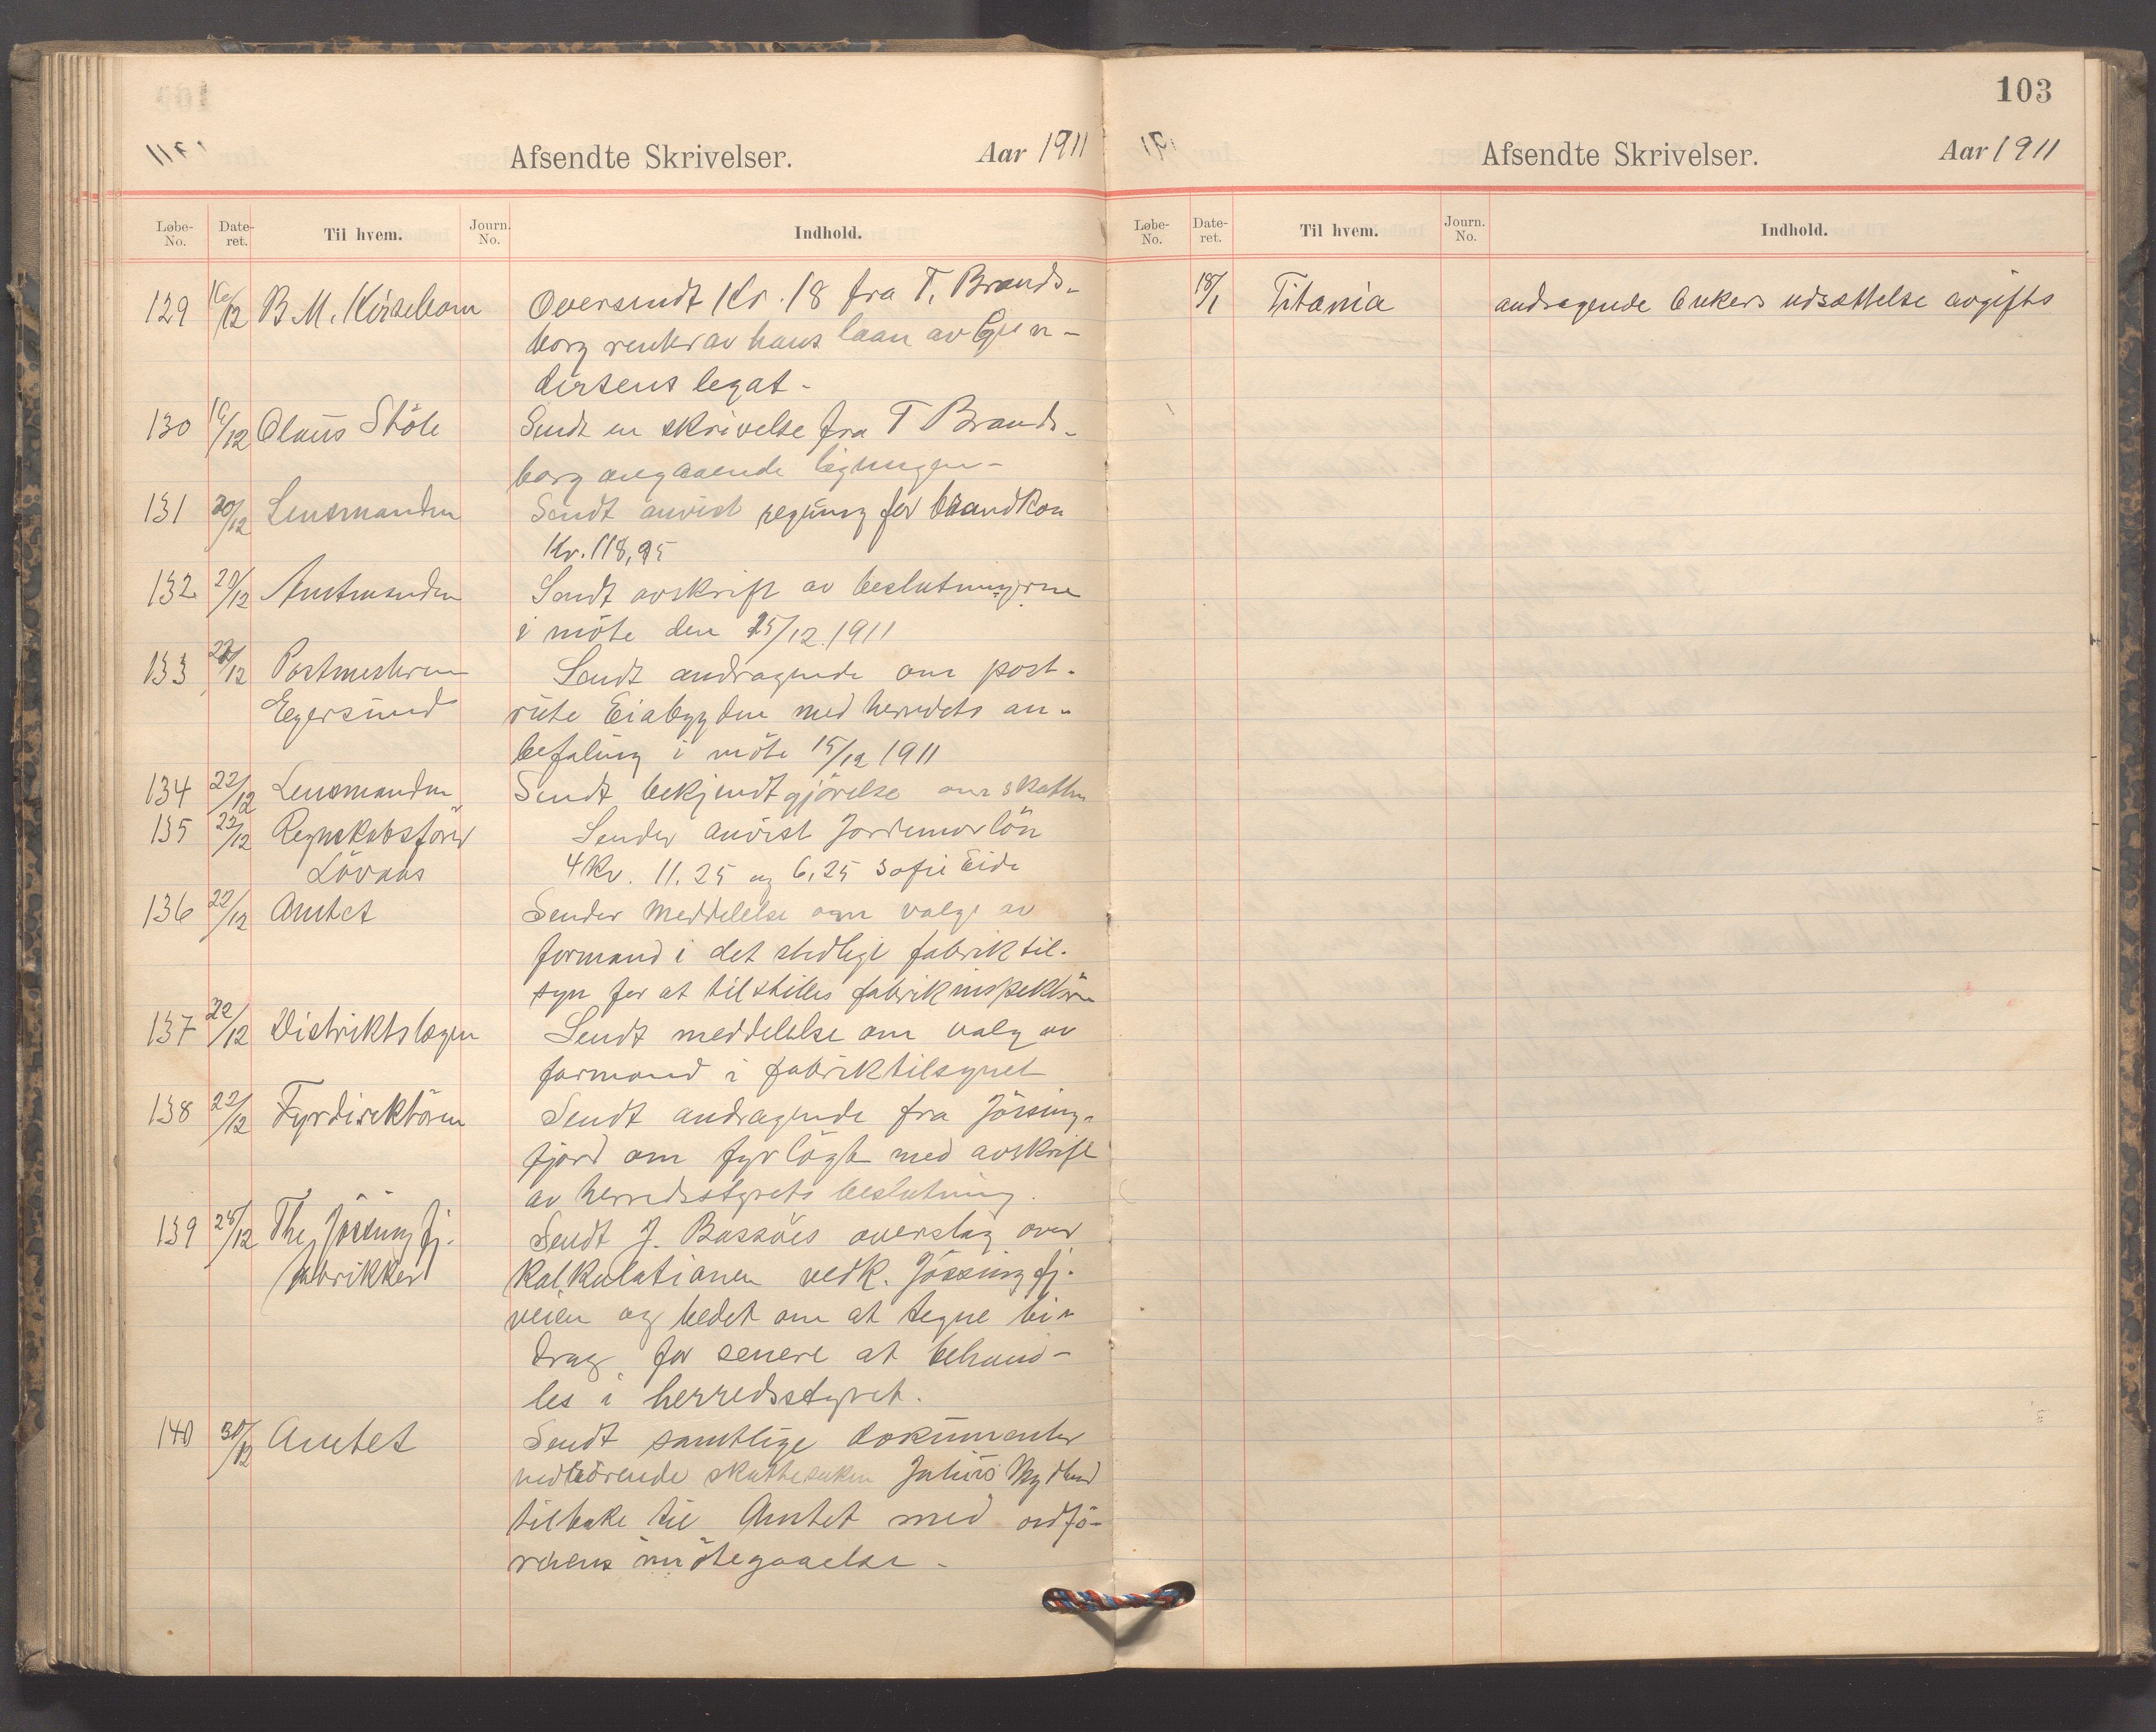 Afsendte Skrivelser. Aar 1911
Løbe-No. Date-ret. Til hvem. Journ. No. Indhold.
129 16/12 B. M. Kirsebom Oversendt Kr. 18 fra T. Brands-
borg renter av hans laan av
legat-
130 16/12 Olaus Stöle Sendt en skrivelse fra T Brands-
borg angaaende ligningen-
131 20/12 Lensmanden Sendt anvist regning for brandkon
Kr. 118,95
132 20/12 Amtmanden Sendt avskrift av beslutningerne
i möte den 15/12 1911
133 20/12 Postmesteren Sendt andragende om post-
Egersund rute Eiabygden med herredets an-
befaling i möte 15/12 1911
134 22/12 Lensmanden Sendt bekjendtgjörelse om skatten
135 22/12 Regnskabsförer Sender anvist Jordemorlön
Lövaas 4 Kv. 11.25 og 6,25 Sofie Eide
136 22/12 Amtet Sender meddelelse om valge av
formand i det stedlige fabriktil-
syn for at tilstilles fabrikinspektören
137 22/12 Distriktslægen Sendt meddelelse om valg av
formand i fabriktilsynet
138 22/12 Fyrdirektören Sendt andragende fra Jössing-
fjord om fyrlögt med avskrift
av herredsstyrets beslutning.
139 28/12 The Jössingfj. Sendt J. Bassöes overslag over
fabrikker Kalkulationen vedk. Jössingfj.
veien og bedet om at tegne bi-
drag for senere at behand-
les i herredsstyret.
140 30/12 Amtet Sendt samtlige dokumenter
vedkörende skattesaken Julius Mydland
tilbake til Amtet med ordfö-
rerens imötegaaelse-
103
Afsendte Skrivelser. Aar 1911
Løbe-No. Date-ret. Til hvem. Journ. No. Indhold.
18/1 Titania andragende Ankers udsættelse avgifts